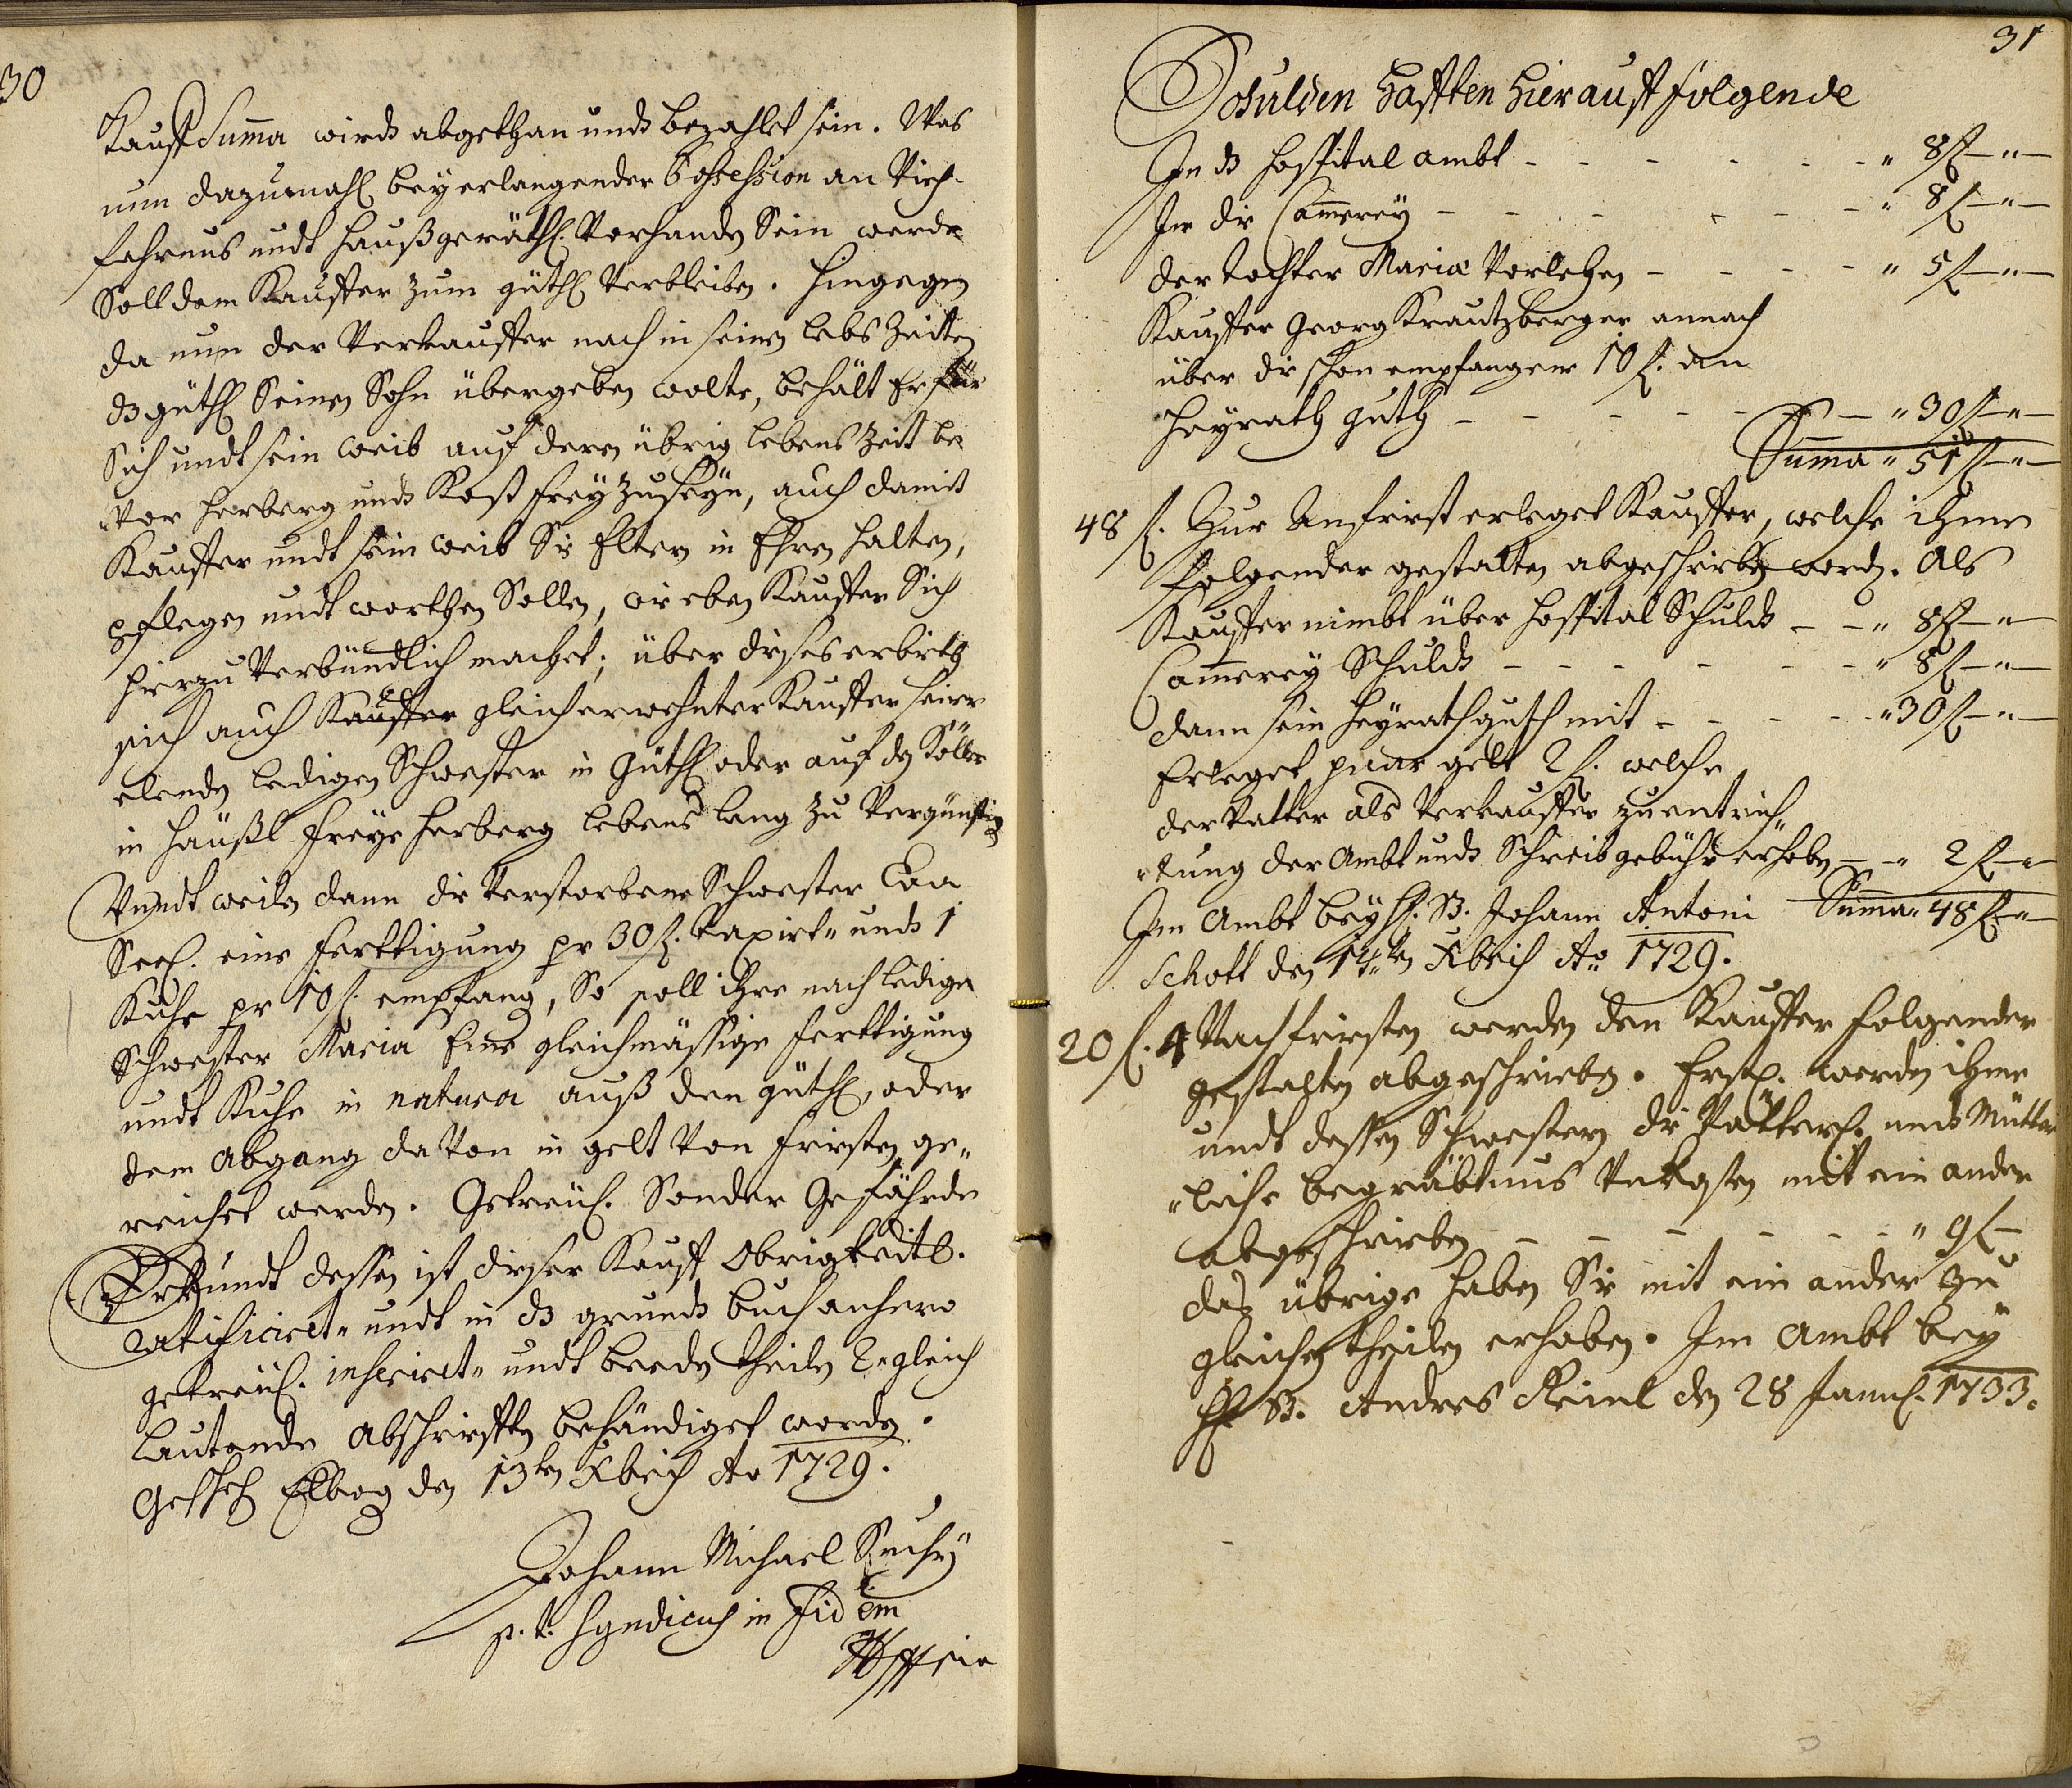 30
Kauff Suma wirdt abgethan undt bezahlet sein. Was
nun dazumahl bey erlangender Possession an Vieh-
fahrnus undt haußgeräthl. Vorhanden Sein werde
Soll dem Kauffer zum güthl Verbleiben. Hingegen
da nun der Verkauffer nach in seinen lebs Zeiten
dz güthl Seinen Sohn übergeben wolte, behält Er für
Sich undt sein weib auf deren übrig lebens Zeit be
„vor herberg undt Kost frey zu seyn, auch damit
Kauffer undt sein weib Sie Eltern in Ehren halten,
pflegen undt warthen Sollen, wie eben Kauffer Sich
hierzu Verbündtlich machet; über dieses erbieth
sich auch Kauffer gleich erwehnter Kauffer seiner
elenden ledigen Schwester in güthl oder auf den
in häußl freye herberg lebens lang zu Vergünstigen
Undt weilen dann die Verstorbene Schwester Eva
Seel. eine Ferttigung pr 30 fl. taxirt„ undt 1
Kuhe pr 10 fl. empfang, So soll ihre nach ledige
Schwester Maria Eine gleichmässige ferttigung
undt Kuhe in natura auß den güthl, oder
dem Abgang da Von in gelt Von fristen ge„
reichet werden. Getreül. Sonder Gefährde
Urkundt dessen ist dieser Kauff Obrigkeitl.
ratificiret„ undt in dz grundt buch anhero
getreül. inseriret„ undt beeden theilen 2. gleich
lautende Abschrifften behändiget worden.
Gescheh Elbog den 13ten Xbris Ao 1729.
Johann Michael Suchy
p. t. Syndicus in Fidem
31
Schulden hafften hierauff folgende
In dz Hospital ambt - - - - - - „ 8 fl - „ -
In die Camerey - - - - - - „ 8 fl - „ -
der tochter Maria Vorlehen - - - - „ 5 fl - „ -
Kauffer Georg Krautzberger annach
über die schon empfangene 10 fl. an
Heyrath guth - - - - - - „ 30 fl - „ -
Suma „ 51 fl - „ -
48 fl. Zur Anfrist erleget Kauffer, welche ihme
folgender gestalten abgeschrieben word. Als
Kauffer nimbt über Hospital Schuldt - - „ 8 fl - „ -
Camerey Schuldt - - - - - - „ 8 fl - „ -
dann sein Heyrathguth mit - - - - „ 30 fl - „ -
Erleget paar gelt 2 fl. welche
der Vatter als Verkauffer zu entrich„
„tung der Ambt undt Schreibgebühr erhoben - - „ 2 fl - „ -
Im Ambt bey H. B. Johann Antoni Suma „ 48 fl - „ -
Schott den 14ten Xbris Ao 1729.
20 fl. 4 Nachfristen werden den Kauffer folgender
gestalten abgeschrieben. Erstl. werden ihme
undt dessen Schwestern die Vätterl. undt Mütter
„liche begräbtnus Unkosten mit ein ander
abgeschrieben - - - - - - „ 9 fl -
das übrige haben Sie mit ein ander zu
gleichen theilen erhoben. Im Ambt bey
H. B. Andres Reinl den 28 Januar. 1733.